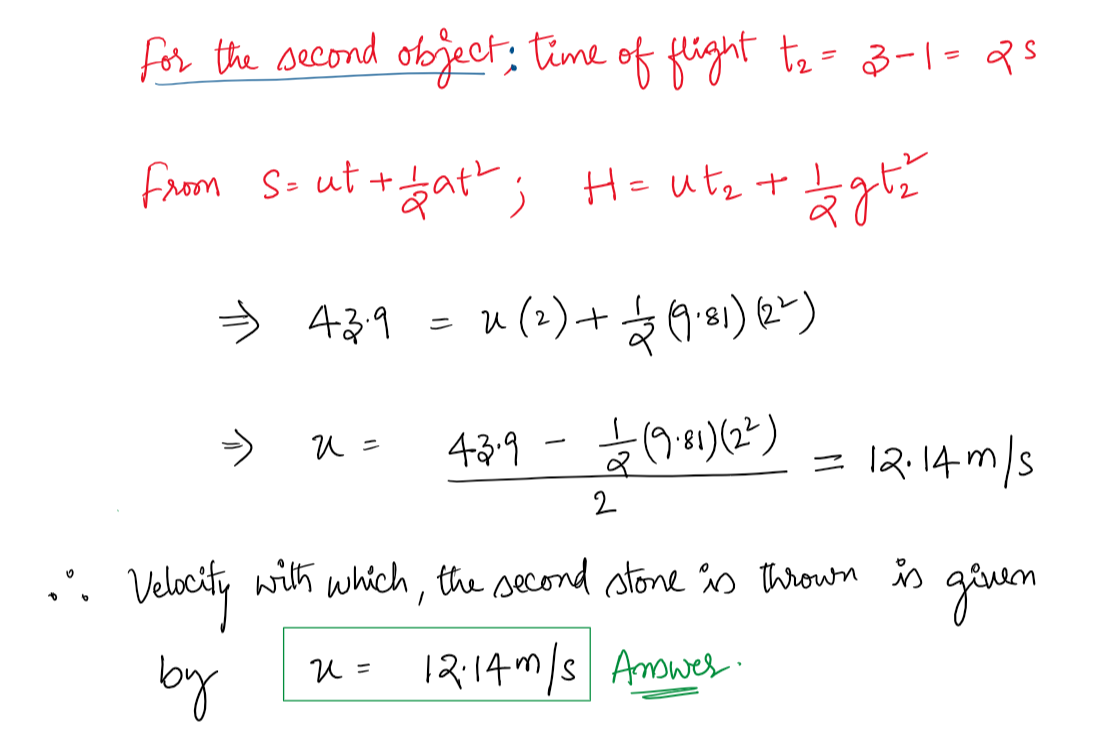 For the second object: time of flight t₂ = 3-1 = 2s
From S = ut + 1/2 at²; H = ut₂ + 1/2 gt₂²
⇒ 43.9 = u(2) + 1/2 (9.81)(2²)
⇒ u = (43.9 - 1/2 (9.81)(2²)) / 2 = 12.14 m/s
∴ Velocity with which, the second stone is thrown is given
by u = 12.14 m/s Answer.